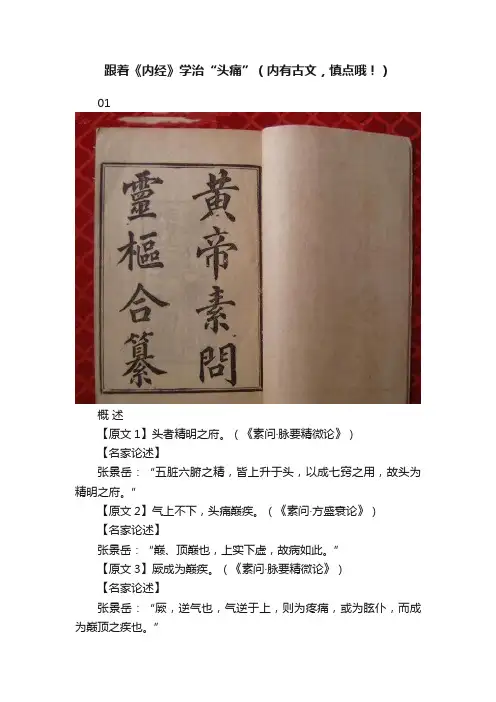 跟着《内经》学治“头痛”（内有古文，慎点哦！）
01
黄帝素問
靈樞合纂
概 述
【原文1】头者精明之府。（《素问·脉要精微论》）
【名家论述】
张景岳：“五脏六腑之精，皆上升于头，以成七窍之用，故头为
精明之府。”
【原文2】气上不下，头痛巅疾。（《素问·方盛衰论》）
【名家论述】
张景岳：“巅、顶巅也，上实下虚，故病如此。”
【原文3】厥成为巅疾。（《素问·脉要精微论》）
【名家论述】
张景岳：“厥，逆气也，气逆于上，则为疼痛，或为眩仆，而成
为巅顶之疾也。”